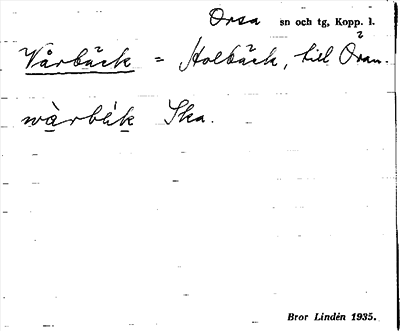 Orsa sn och tg, Kopp. l.
Vårbäck = Holbäck, till Oran.
wàrblk Ska.
Bror Lindén 1935.